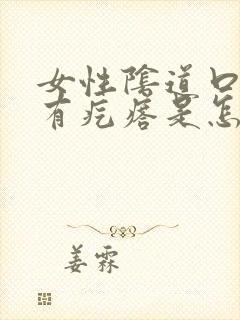 女性阴道口
有疙瘩是怎
姜霖